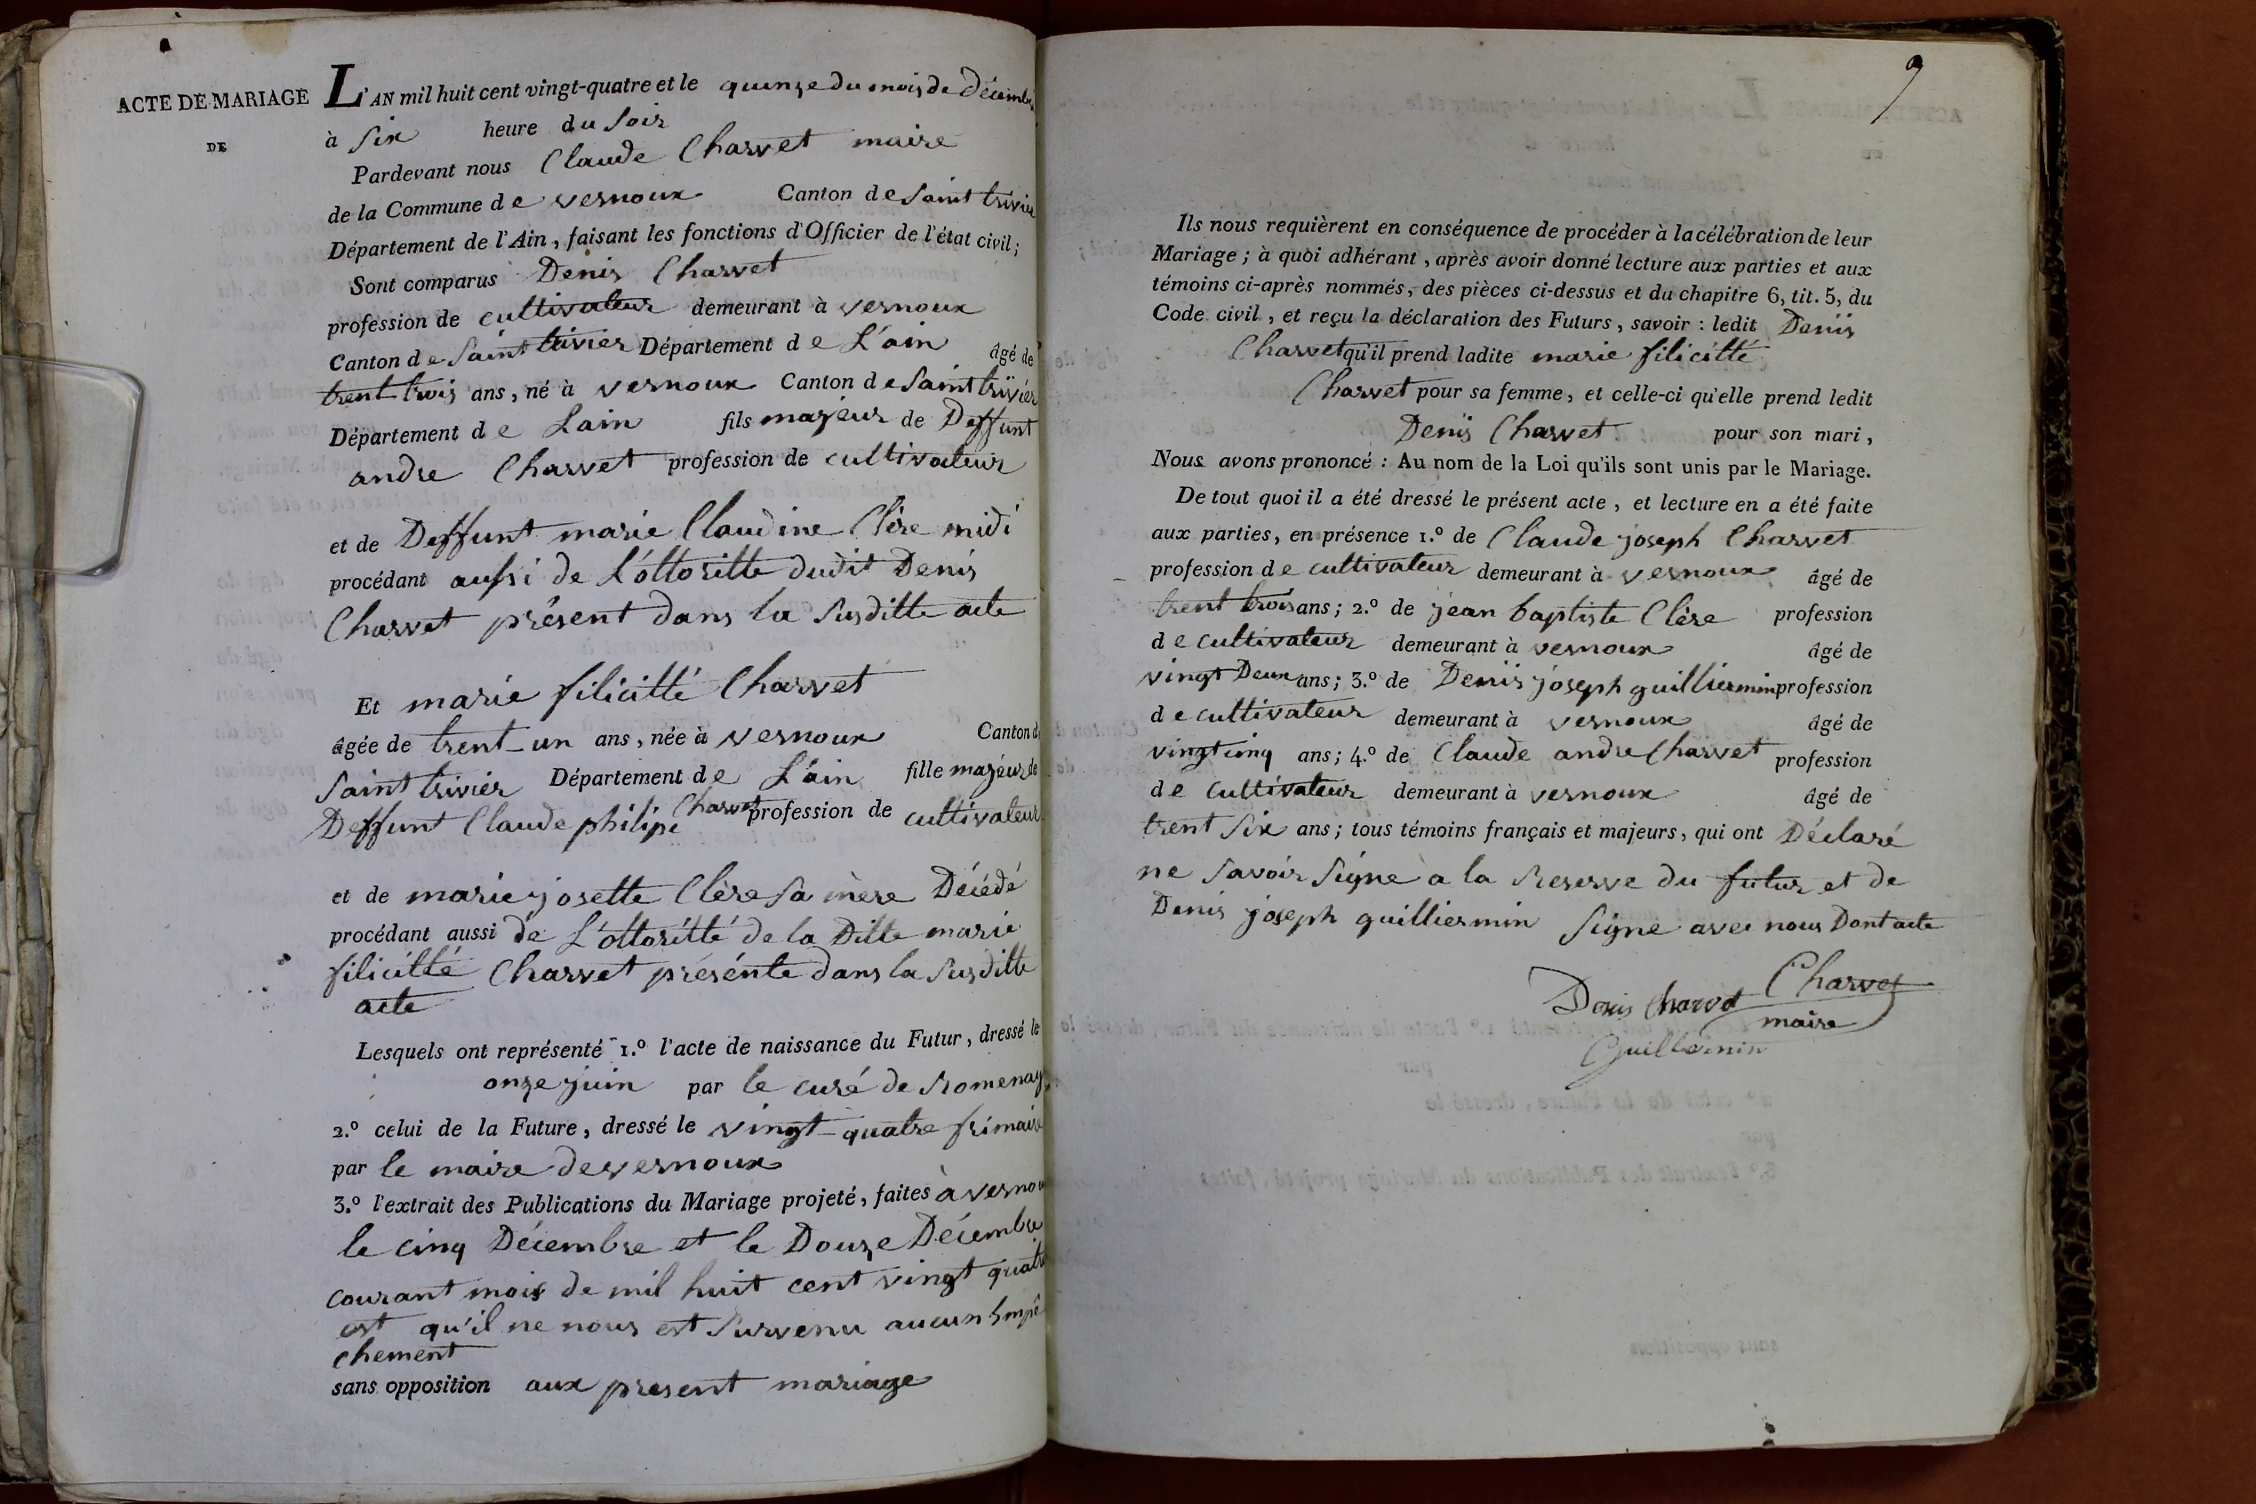 ACTE DE MARIAGE
DE
L'AN mil huit cent vingt-quatre et le quinze du mois de Décembre
à Six heure du Soir
Pardevant nous Claude Charvet maire
de la Commune de vernoux Canton de Saint trivier
Département de l'Ain, faisant les fonctions d'Officier de l'état civil;
Sont comparus Denis Charvet
profession de cultivateur demeurant à vernoux
Canton de Saint trivier Département de L'ain âgé de
trent trois ans, né à vernoux Canton de Saint trivier
Département de Lain fils majeur de Deffunt
andre Charvet profession de cultivateur
et de Deffunt marie Claudine Clère midi
procédant aussi de L'ottoritte dudit Denis
Charvet présent dans la Susditte acte
Et marie filicitté Charvet
âgée de trent-un ans, née à vernoux Canton d
Saint trivier Département de L'ain fille majeur de
Deffunt Claude philipe Charvet profession de cultivateur
et de marie josette Clère Sa mère Décédé
procédant aussi de L'ottoritté de la Ditte marie
filicitté Charvet présente dans la Susditte
acte
Lesquels ont représenté 1.º l'acte de naissance du Futur, dressé le
onze juin par le curé de Romenay
2.º celui de la Future, dressé le vingt-quatre frimaire
par le maire de vernoux
3.º l'extrait des Publications du Mariage projeté, faites à vernoux
le cinq Décembre et le Douze Décembre
courant mois de mil huit cent vingt quatre
est qu'il ne nous est Survenu aucun Empê
chement
sans opposition aux present mariage
9
Ils nous requièrent en conséquence de procéder à la célébration de leur
Mariage; à quoi adhérant, après avoir donné lecture aux parties et aux
témoins ci-après nommés, des pièces ci-dessus et du chapitre 6, tit. 5, du
Code civil, et reçu la déclaration des Futurs, savoir: ledit Denis
Charvet qu'il prend ladite marie filicitté
Charvet pour sa femme, et celle-ci qu'elle prend ledit
Denis Charvet pour son mari,
Nous avons prononcé: Au nom de la Loi qu'ils sont unis par le Mariage.
De tout quoi il a été dressé le présent acte, et lecture en a été faite
aux parties, en présence 1.º de Claude joseph Charvet
profession de cultivateur demeurant à vernoux âgé de
trent trois ans; 2.º de jean baptiste Clère profession
de cultivateur demeurant à vernoux âgé de
vingt Deux ans; 3.º de Denis joseph guilliermin profession
de cultivateur demeurant à vernoux âgé de
vingt cinq ans; 4.º de Claude andre Charvet profession
de cultivateur demeurant à vernoux âgé de
trent Six ans; tous témoins français et majeurs, qui ont Déclaré
ne Savoir Signe a la Reserve du futur et de
Denis joseph guilliermin Signe avec nous Dont acte
Denis Charvet Charvet
maire
Guillermin